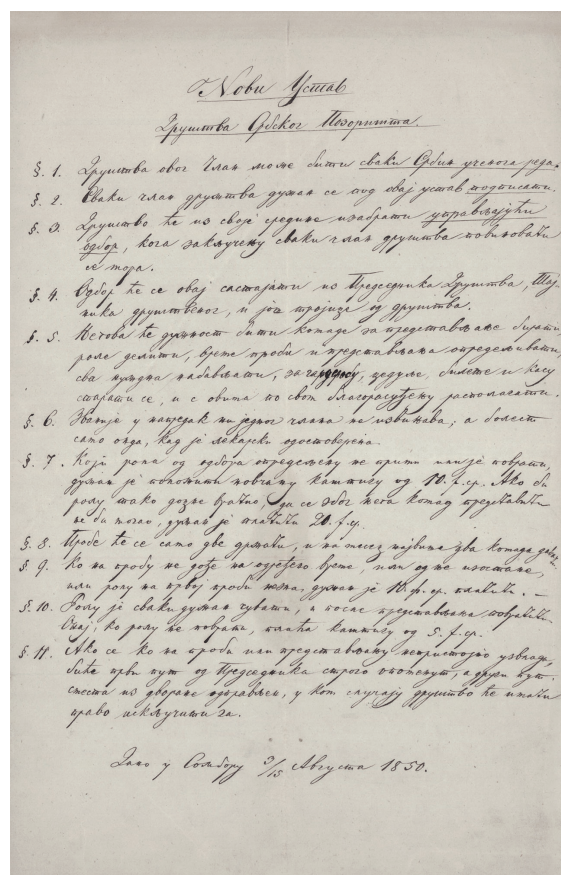 Нови Устав
Друштва Србског Позоришта.
§. 1. Друштва овог Член може бити сваки Србин ученога реда.
§. 2. Сваки член друштва дужан се под овај устав подписати.
§. 3. Друштво ће из своје средине изабрати управљајући
одбор, кога закључену сваки член друштва повиновати
се мора.
§. 4. Одбор ће се овај састајати из Председника Друштва, Тај-
ника друштвеног, и још тројице од друштва.
§. 5. Његова ће дужност бити комаде за представљање бирати,
роле делити, време проби и представљања определивати,
сва нуждна набављати, за гардеробу, цедуље, билете и касу
старати се, и с овима по свом благорасуђењу располагати.
§. 6. Званије у напредак ни једног члена не извињава; а болест
само онда, кад је лекарски удостоверена.
§. 7. Који рола од одбора определену не прими или је поврати,
дужан је положити новчану каштигу од 10. f. ср. Ако би
ролу тако доцне вратио, да се због тога комад представити
не би могао, дужан је платити 20. f. ср.
§. 8. Пробе ће се само две држати, и на месец највише два комада давати.
§. 9. Ко на пробу не дође на одређено време, или од ње изостане,
или ролу на првој проби незна, дужан је 10. ф. ср. платити. –
§. 10. Ролу је сваки дужан чувати, и после представљања повратити.
Онај, ко ролу не поврати, плаћа каштигу од 5. f. ср.
§. 11. Ако се ко на проби или представљању непристојно узвлада,
биће први пут од Председника строго опоменут, а други пут
сместа из дворане одправљен, у ком случају друштво ће имати
право искључити га.
Дано у Сомбору 3/15 Августа 1850.